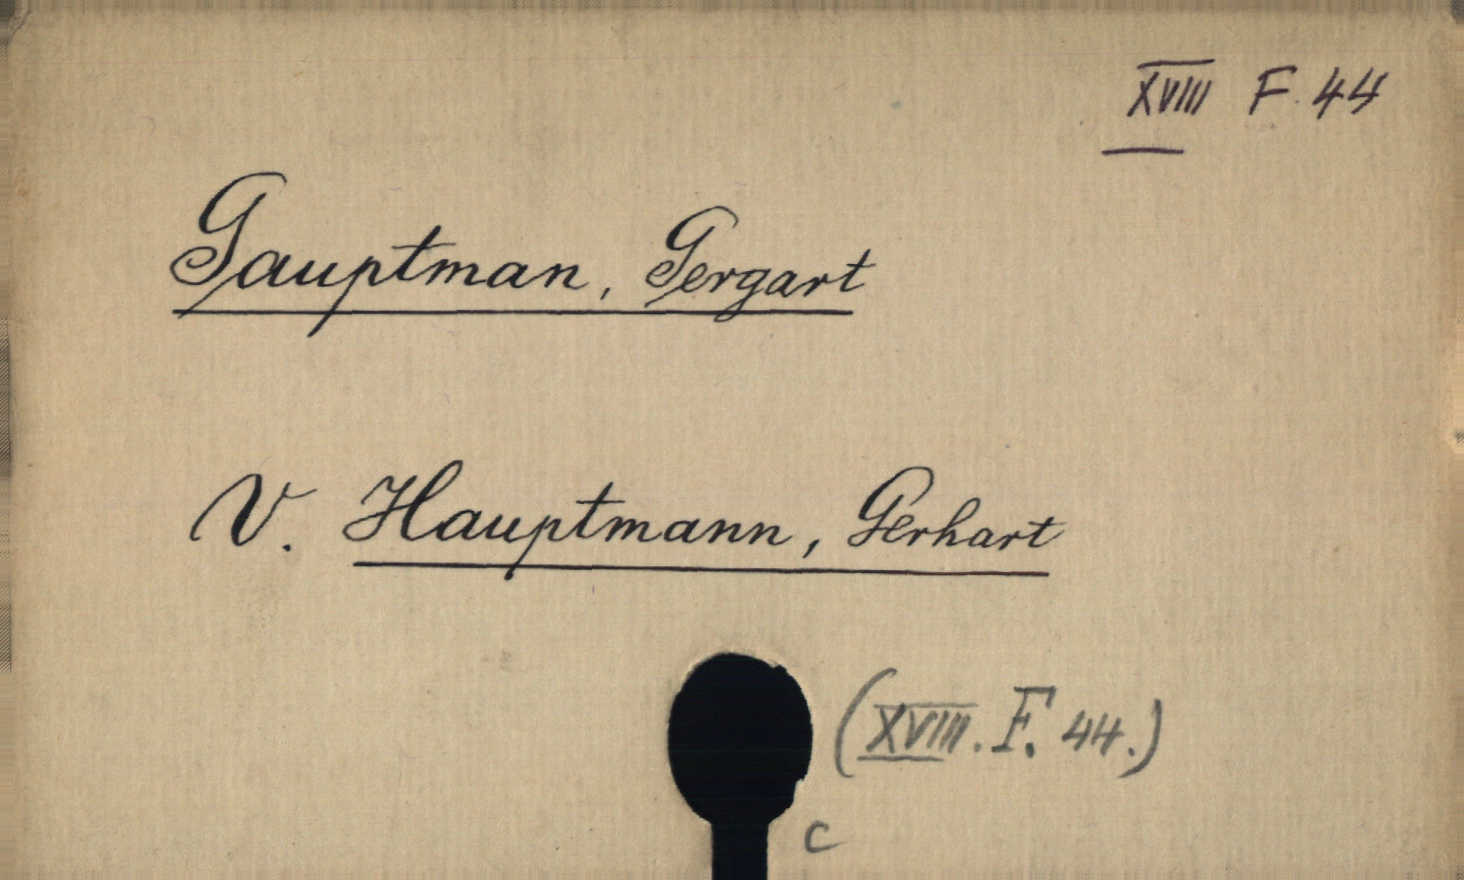 XVIII F. 44
Gauptman, Gergart
V. Hauptmann, Gerhart
(XVIII. F. 44.)
c